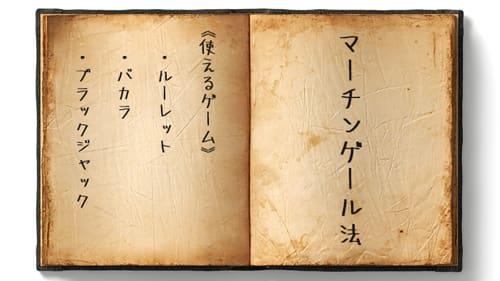 マーチンゲール法
《使えるゲーム》
・ルーレット
・バカラ
・ブラックジャック